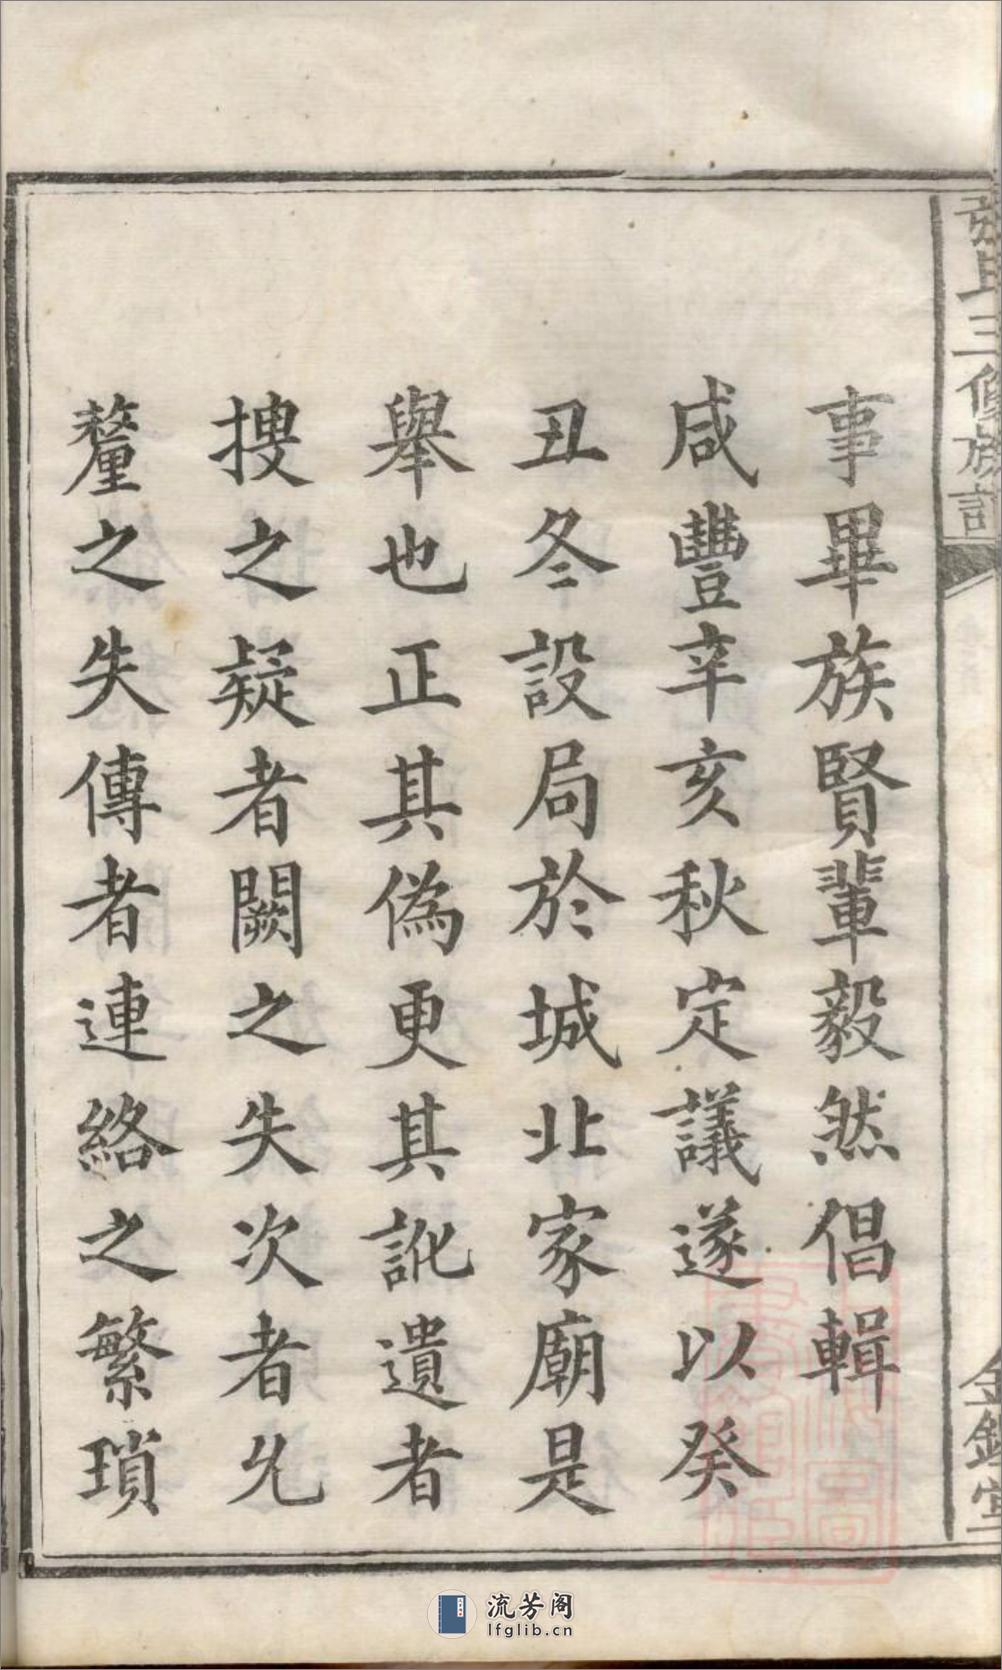 三修族
事畢族賢輩毅然倡輯
咸豐辛亥秋定議遂以癸
丑冬設局於城北家廟是
舉也正其偽更其訛遺者
搜之疑者闕之失次者
釐之失傳者連絡之繁瑣
流芳阁
lfglib.cn